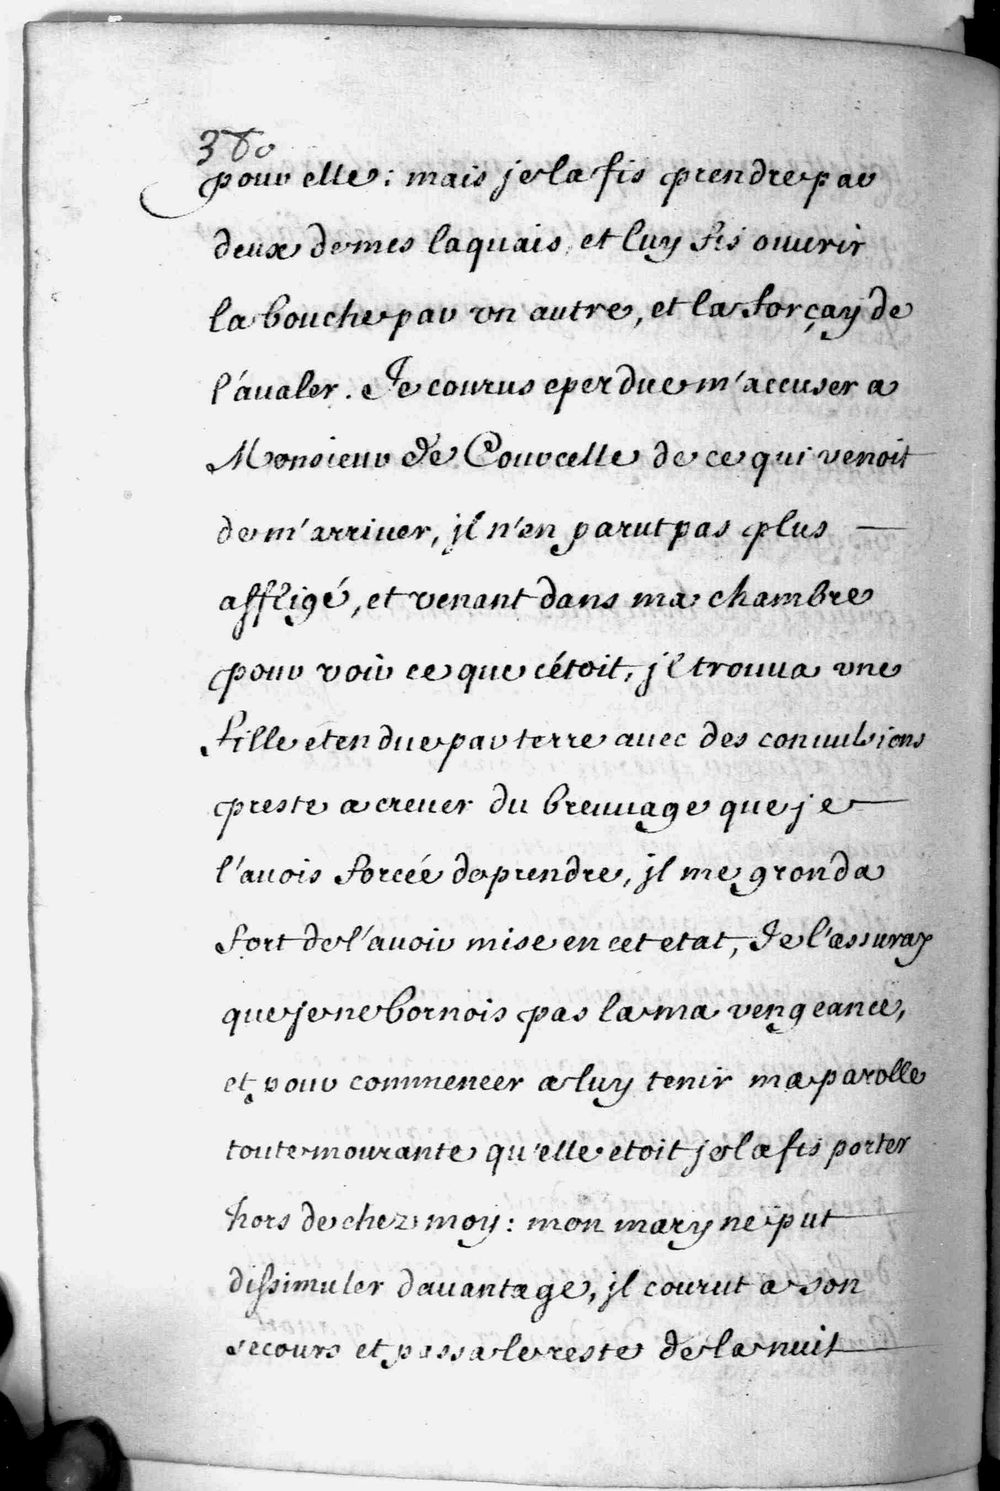 380
pour elle: mais je la fis prendre par
deux de mes laquais, et luy fis ouurir
la bouche par vn autre, et la forçay de
l'áualer. Je courus eperdue m'accuser a
Monsieur de Courcelle de ce qui venoit
de m'arriuer, jl n'en parut pas plus
affligé, et venant dans ma chambre
pour voir ce que cétoit, jl trouua vne
fille etendue par terre auec des conuulsions
preste a creuer du breuuage que je
l'auois forcée de prendre, jl me gronda
fort de l'auoir mise en cet etat, Je l'assuray
que je ne bornois pas la ma vengeance,
et pour commencer a luy tenir ma parolle
toute mourante qu'elle etoit je la fis porter
hors de chez moy: mon mary ne put
dissimuler dauantage, jl courut a son
secours et passa le reste de la nuit